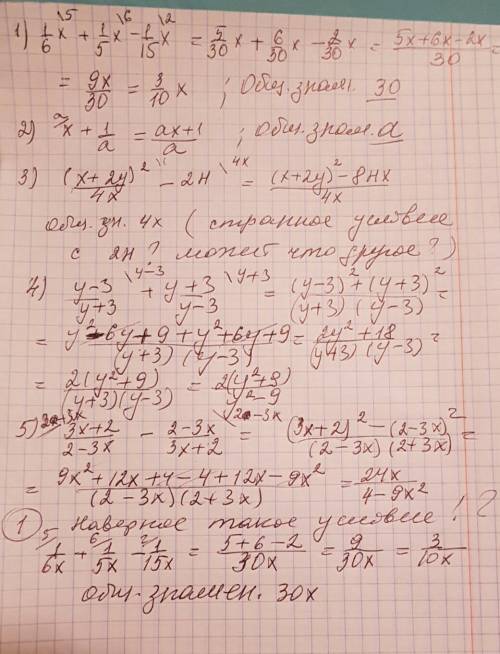 1) 1/6 x \5 + 1/5 x \6 - 1/15 x \2 = 5/30 x + 6/30 x - 2/30 x = (5x+6x-2x)/30 =
= 9x/30 = 3/10 x ; Общ. знам. 30
2) a/ x + 1/a = (ax+1)/a ; Общ. знам. a
3) (x+2y)²/4x \1 - 2н \4x = ((x+2y)² - 8нx)/4x
общ. зн. 4x ( странное условие
с 2н ? может что другое ? )
4) (y-3)/(y+3) \y-3 + (y+3)/(y-3) \y+3 = ((y-3)² + (y+3)²)/((y+3)(y-3)) =
= (y² - 6y + 9 + y² + 6y + 9)/((y+3)(y-3)) = (2y² + 18)/((y+3)(y-3)) =
= 2(y²+9)/((y+3)(y-3)) = 2(y²+9)/(y²-9)
5) (3x+2)/(2-3x) - (2-3x)/(3x+2) \2-3x = ((3x+2)² - (2-3x)²)/((2-3x)(2+3x)) =
= (9x² + 12x + 4 - 4 + 12x - 9x²)/((2-3x)(2+3x)) = 24x/(4-9x²)
1 Наверное такое условие ! ?
5/ 1/6x + 6/ 1/5x - 2/ 1/15x = (5+6-2)/30x = 9/30x = 3/10x
общ. знамен. 30x